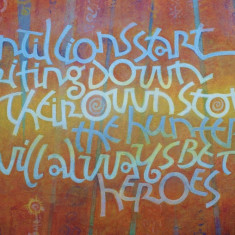 ntil lions start
iting down
their own stor
the hunter
will always be t
heroes